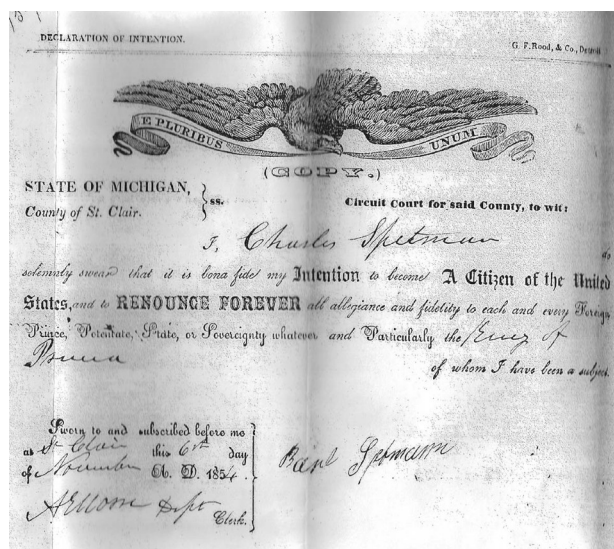 DECLARATION OF INTENTION.
G. F. Rood, & Co., Detroit
E PLURIBUS UNUM
(COPY.)
STATE OF MICHIGAN,
County of St. Clair.
} ss.
Circuit Court for said County, to wit:
I, Charles Spetman do
solemnly swear that it is bona fide my Intention to become A Citizen of the United
States, and to RENOUNCE FOREVER all allegiance and fidelity to each and every Foreign
Prince, Potentate, State, or Sovereignty whatever and Particularly the King of
of whom I have been a subject.
Sworn to and subscribed before me
at St Clair this 6th day
of November A. D. 1854.
Dept Clerk.